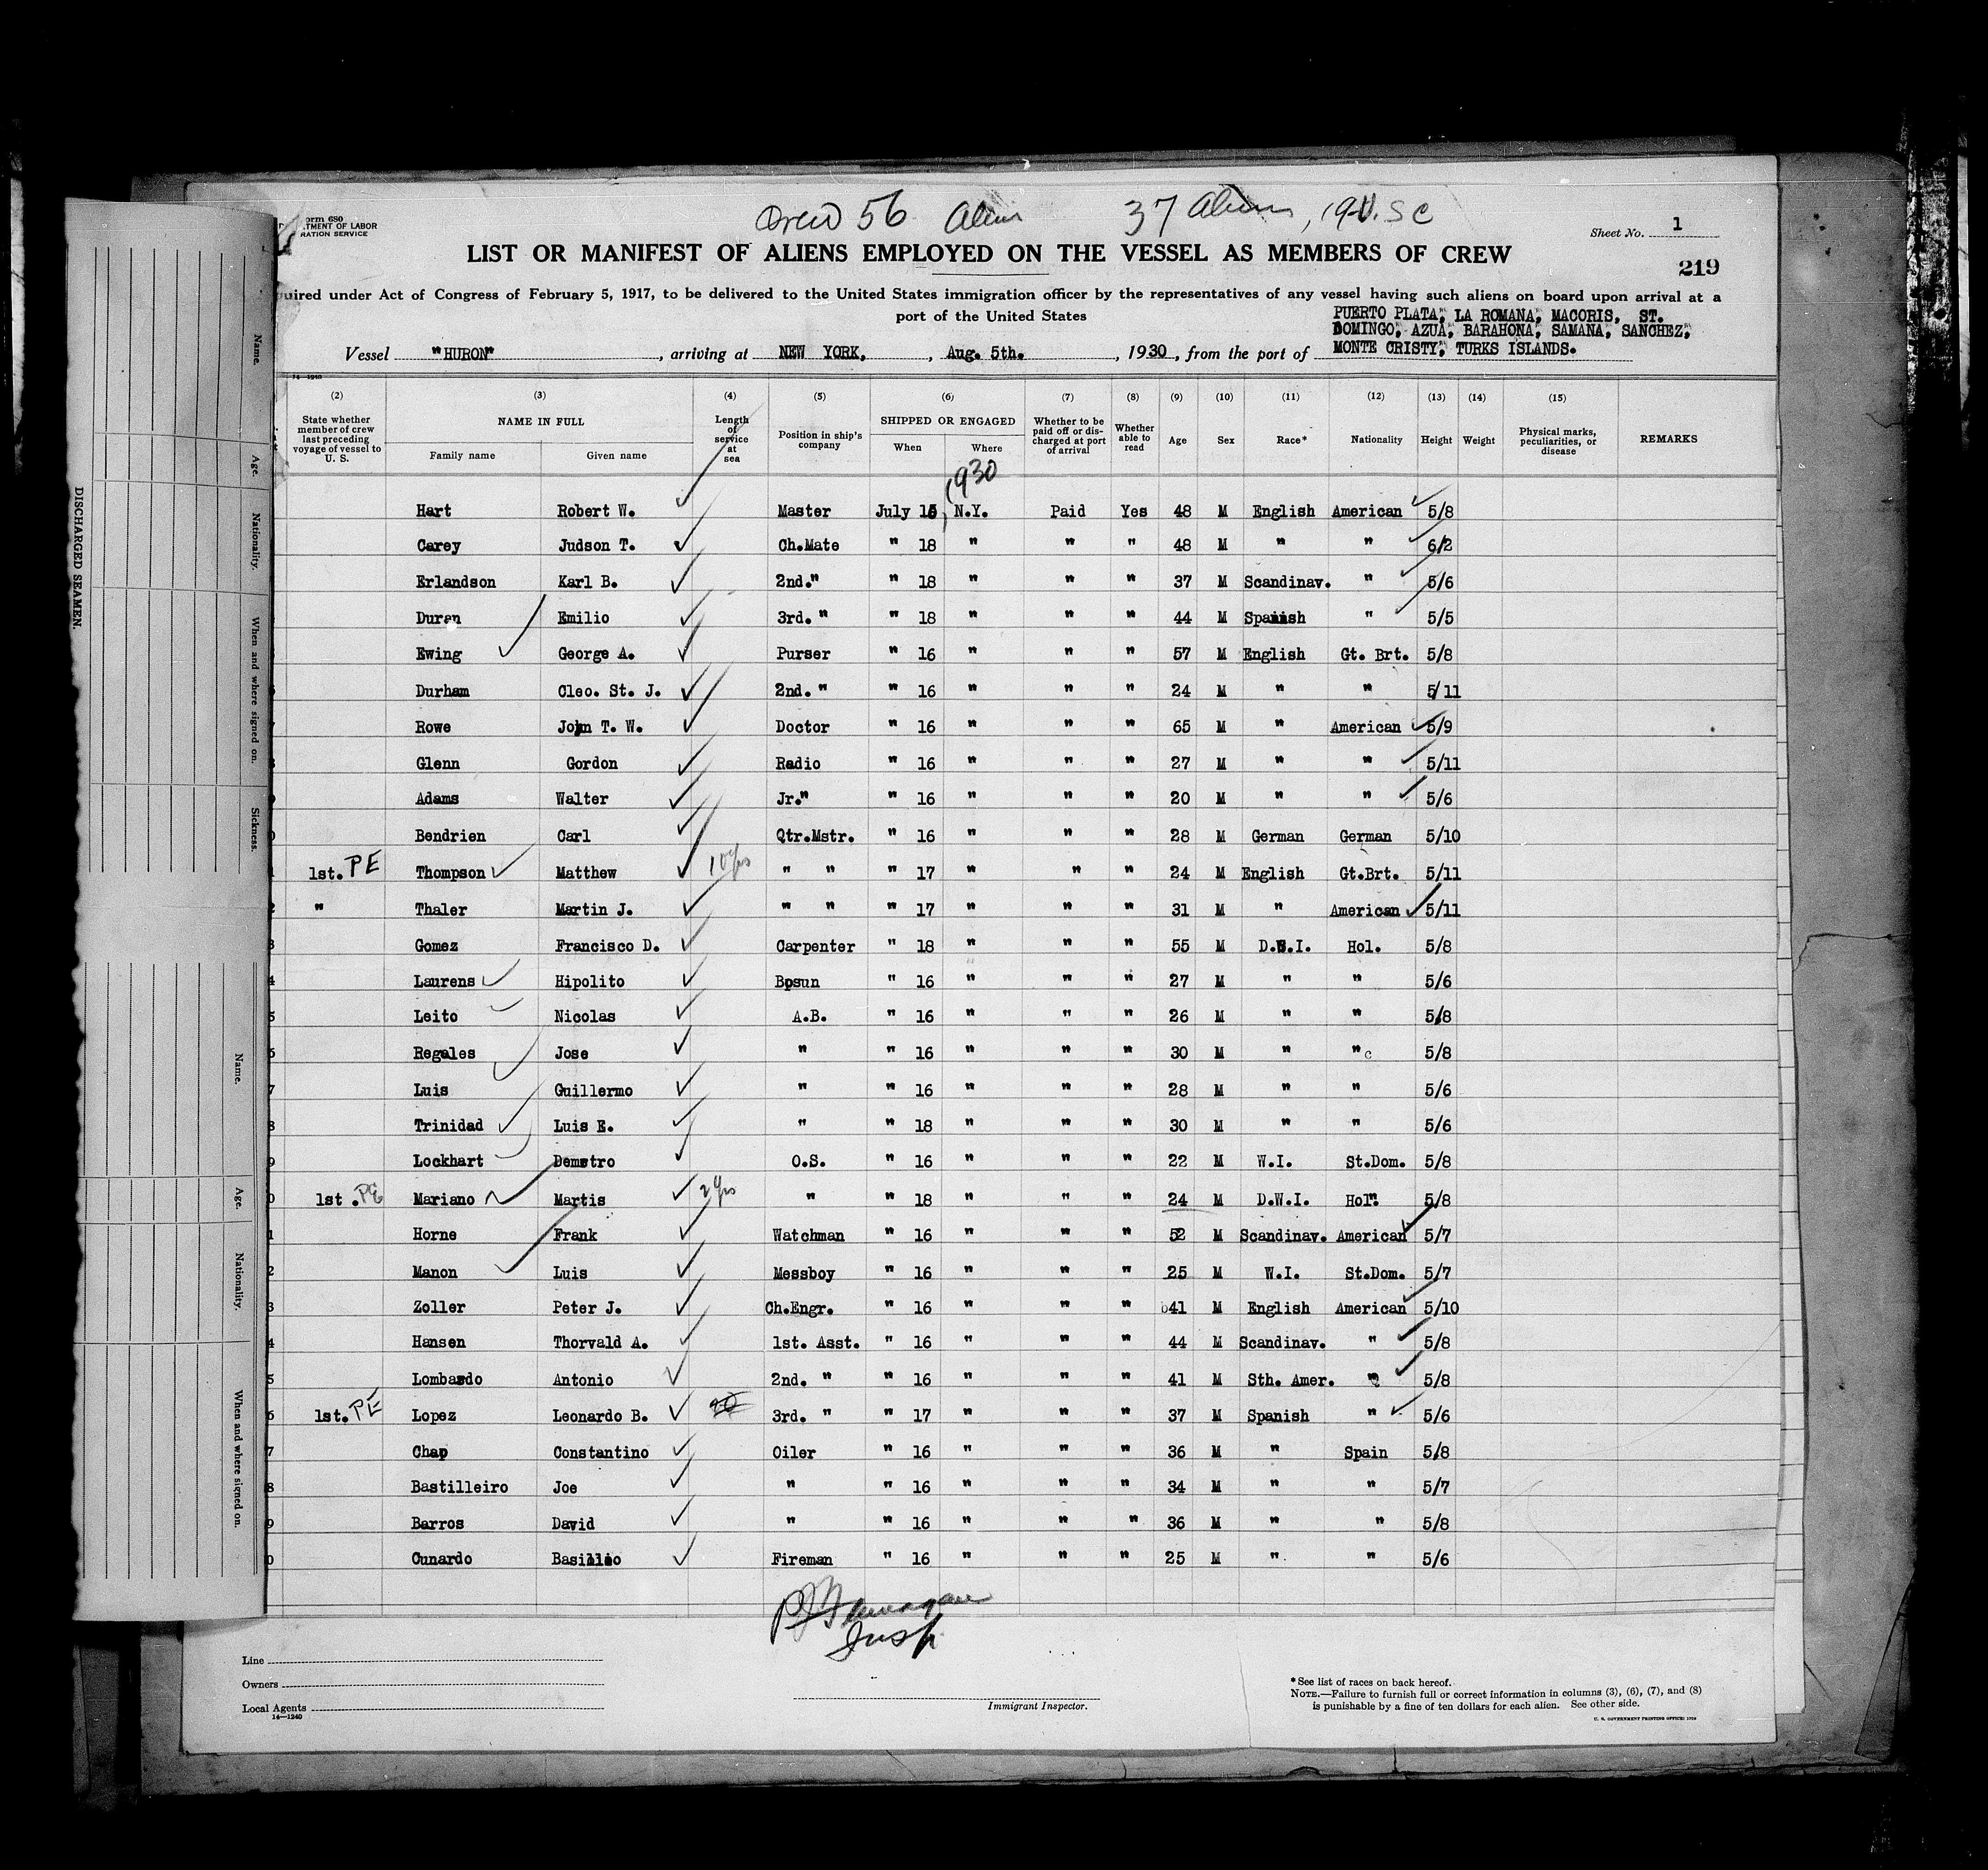 Crew 56 Alien 37 Aliens, 19 U.S C
orm 680
TMENT OF LABOR
RATION SERVICE
Sheet No. 1
LIST OR MANIFEST OF ALIENS EMPLOYED ON THE VESSEL AS MEMBERS OF CREW
219
uired under Act of Congress of February 5, 1917, to be delivered to the United States immigration officer by the representatives of any vessel having such aliens on board upon arrival at a
port of the United States
PUERTO PLATA, LA ROMANA, MACORIS, ST.
DOMINGO, AZUA, BARAHONA, SAMANA, SANCHEZ,
MONTE CRISTY, TURKS ISLANDS.
Vessel "HURON", arriving at NEW YORK, , Aug. 5th. , 1930, from the port of
14-1240
(2) (3) (4) (5) (6) (7) (8) (9) (10) (11) (12) (13) (14) (15)
State whether member of crew last preceding voyage of vessel to U. S.
NAME IN FULL
Family name Given name
Length of service at sea
Position in ship's company
SHIPPED OR ENGAGED
When Where
Whether to be paid off or discharged at port of arrival
Whether able to read
Age Sex Race* Nationality Height Weight
Physical marks, peculiarities, or disease
REMARKS
1930
Hart Robert W. Master July 15, N.Y. Paid Yes 48 M English American 5/8
Carey Judson T. Ch.Mate " 18 " " " 48 M " " 6/2
Erlandson Karl B. 2nd." " 18 " " " 37 M Scandinav. " 5/6
Duran Emilio 3rd. " " 18 " " " 44 M Spanish " 5/5
Ewing George A. Purser " 16 " " " 57 M English Gt. Brt. 5/8
Durham Cleo. St. J. 2nd. " " 16 " " " 24 M " " 5/11
Rowe John T. W. Doctor " 16 " " " 65 M " American 5/9
Glenn Gordon Radio " 16 " " " 27 M " " 5/11
Adams Walter Jr." " 16 " " " 20 M " " 5/6
Bendrien Carl Qtr.Mstr. " 16 " " " 28 M German German 5/10
1st. PE Thompson Matthew 10yrs " " " 17 " " " 24 M English Gt.Brt. 5/11
" Thaler Martin J. " " " 17 " " " 31 M " American 5/11
Gomez Francisco D. Carpenter " 18 " " " 55 M D.W.I. Hol. 5/8
Laurens Hipolito Bosun " 16 " " " 27 M " " 5/6
Leito Nicolas A.B. " 16 " " " 26 M " " 5/8
Regales Jose " " 16 " " " 30 M " " 5/8
Luis Guillermo " " 16 " " " 28 M " " 5/6
Trinidad Luis E. " " 18 " " " 30 M " " 5/6
Lockhart Demetro O.S. " 16 " " " 22 M W.I. St.Dom. 5/8
1st. PE Mariano Martis 2yrs " " 18 " " " 24 M D.W.I. Hol. 5/8
Horne Frank Watchman " 16 " " " 52 M Scandinav. American 5/7
Manon Luis Messboy " 16 " " " 25 M W.I. St.Dom. 5/7
Zoller Peter J. Ch.Engr. " 16 " " " 41 M English American 5/10
Hansen Thorvald A. 1st. Asst. " 16 " " " 44 M Scandinav. " 5/8
Lombardo Antonio 2nd. " " 16 " " " 41 M Sth. Amer. " 5/8
1st. PE Lopez Leonardo B. 3rd. " " 17 " " " 37 M Spanish " 5/6
Chap Constantino Oiler " 16 " " " 36 M " Spain 5/8
Bastilleiro Joe " " 16 " " " 34 M " " 5/7
Barros David " " 16 " " " 36 M " " 5/8
Cunardo Basilio Fireman " 16 " " " 25 M " " 5/6
Insp.
Line
Owners
Local Agents
14-1240
Immigrant Inspector.
*See list of races on back hereof.
NOTE.—Failure to furnish full or correct information in columns (3), (6), (7), and (8)
is punishable by a fine of ten dollars for each alien. See other side.
U. S. GOVERNMENT PRINTING OFFICE:
DISCHARGED SEAMEN.
Name. Age. Nationality. When and where signed on. Sickness.
Name. Age. Nationality. When and where signed on.